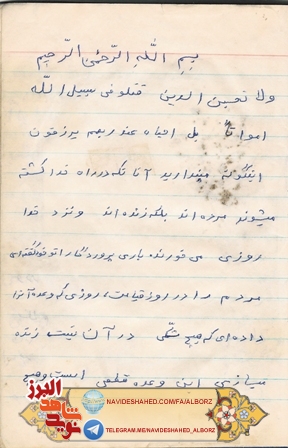 بسم الله الرحمن الرحیم
ولا تحسبن الذین قتلو فی سبیل الله
امواتاً بل احیاء عند ربهم یرزقون
اینگونه مپندارید آنانکه در راه خدا کشته
میشوند مرده اند بلکه زنده اند و نزد خدا
روزی می خورند باری پروردگارا تو خود گفته ای
مردم را در روز قیامت، روزی که وعده آنرا
داده ای که هیچ شکی در آن نیست زنده
میسازی این وعده قطعی است و هیچ
نوید شاهد البرز
NAVIDESHAHED.COM/FA/ALBORZ
TELEGRAM.ME/NAVIDESHAHED_ALBORZ